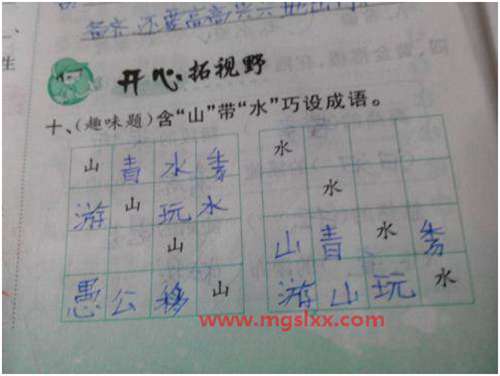 开心拓视野
十、(趣味题)含“山”带“水”巧设成语。
山青水秀
游山玩水
山
愚公移山
水
水
山青水秀
游山玩水
www.mgslxx.com